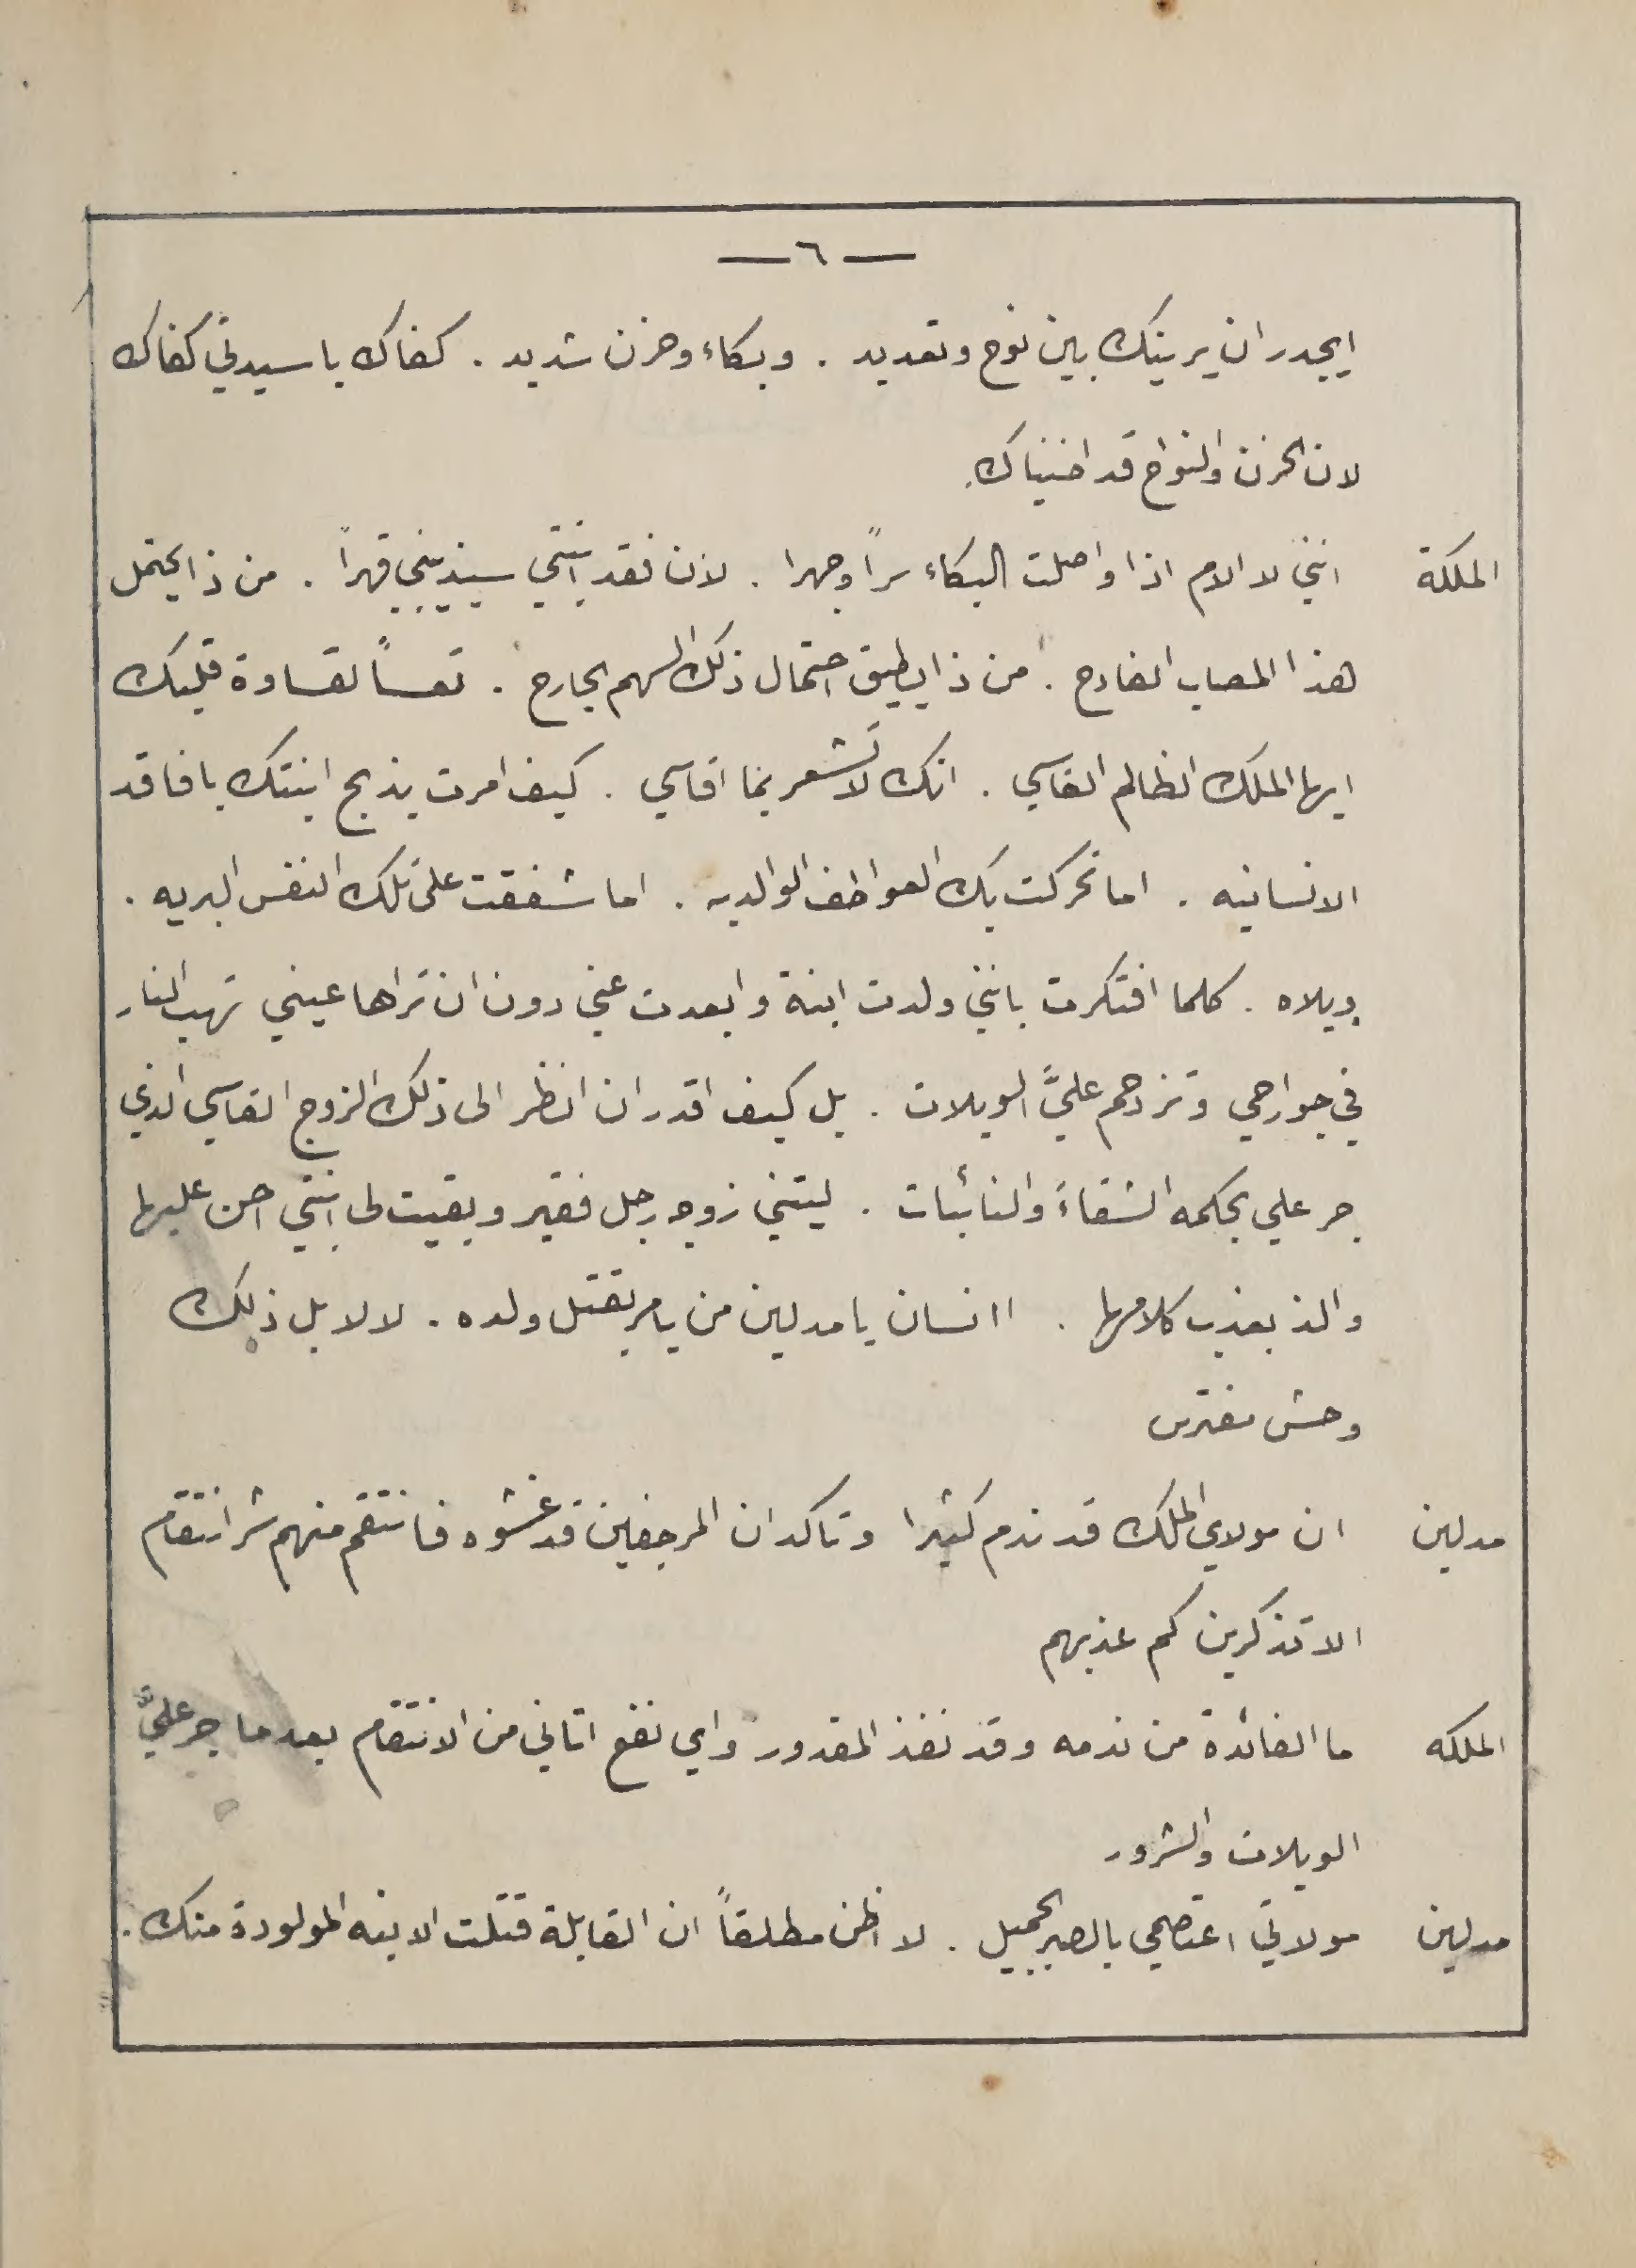 — ٦ —
ايجدر ان يرينك بين نوح وتعديد . وبكاء وحزن شديد . كفاك يا سيدتي كفاك
لان الحزن والنواح قد اضنياك
الملكة انني لا الام اذا واصلت البكاء سراً وجهرا . لان فقد ابنتي سيذيبني قهراً . من ذا يحتمل
هذا المصاب الفادح . من ذا يطيق احتمال ذلك السهم الجارح . تعساً لقساوة قلبك
ايها الملك الظالم القاسي . انك لا تشعر بما اقاسي . كيف امرت بذبح ابنتك يا فاقد
الانسانيه . اما تحركت بك العواطف الوالديه . اما شفقت على تلك النفس البريه .
ويلاه . كلما افتكرت بانني ولدت ابنة وابعدت عني دون ان تراها عيني تهب النار
في جوارحي وتزدحم عليَّ الويلات . بل كيف اقدر ان انظر الى ذلك الزوج القاسي الذي
جر علي بحكمه الشقاءَ والنائبات . ليتني زوجه رجل فقير وبقيت لي ابنتي احن عليها
والذ بعذب كلامها . اانسان يا مدلين من يامر بقتل ولده . لا لا بل ذلك
وحش مفترس
مدلين ان مولاي الملك قد ندم كثيرا وتاكد ان المرجفين قد غشوه فانتقم منهم شر انتقام
الا تذكرين كم عذبهم
الملكه ما الفائدة من ندمه وقد نفذ المقدور واي نفع اتاني من الانتقام بعدما جر عليَّ
الويلات والشرور
مدلين مولاتي اعتصمي بالصبر الجميل . لا اظن مطلقاً ان القابلة قتلت الابنه المولودة منك .